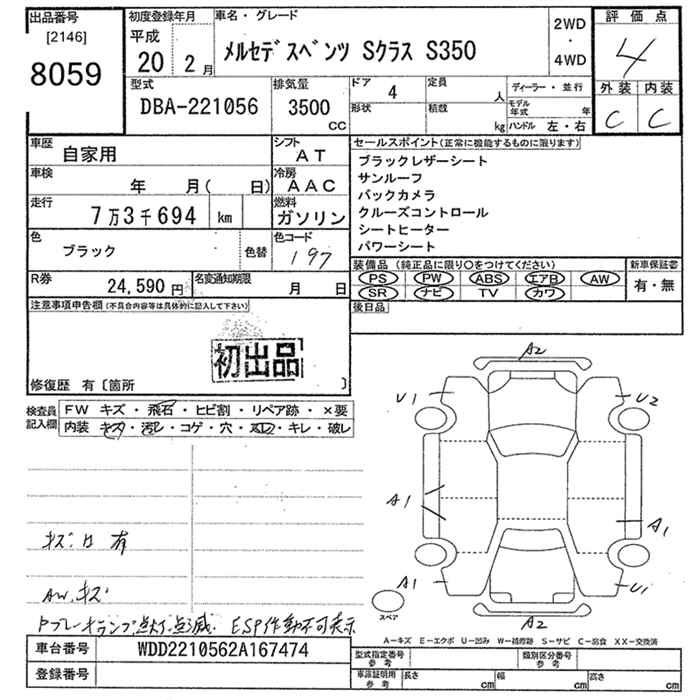 出品番号
[2146]
8059
初度登録年月
平成
20 2月
車名・グレード
メルセデスベンツ Sクラス S350
2WD
・
4WD
評価点
4
外装 内装
C C
型式
DBA-221056
排気量
3500
CC
ドア 4
定員 人
形状
積載 kg
ディーラー・並行
モデル年式 年
ハンドル 左・右
車歴
自家用
シフト
AT
車検
年 月( 日)
冷房
AAC
走行
7万3千694 km
燃料
ガソリン
色
ブラック
色替
色コード
197
R券
24,590円
名変通知期限
月 日
セールスポイント(正常に機能するものに限ります)
ブラックレザーシート
サンルーフ
バックカメラ
クルーズコントロール
シートヒーター
パワーシート
装備品(純正品に限り○をつけてください)
PS PW ABS エアB AW
SR ナビ TV カワ
新車保証書
有・無
後日品
注意事項申告欄(不具合内容等は具体的に記入して下さい)
初出品
修復歴 有〔箇所 〕
検査員記入欄
FW キズ・飛石・ヒビ割・リペア跡・×要
内装 キズ・汚レ・コゲ・穴・スレ・キレ・破レ
キズ凹有
AW.キズ
ブレーキランプ点灯.点滅. ESP作動不可表示
A2
U1
U2
A1
A1
A1
U1
A2
スペア
A−キズ E−エクボ U−凹み W−補修跡 S−サビ C−腐食 XX−交換済
車台番号
WDD2210562A167474
登録番号
型式指定番号
参考
類別区分番号
参考
車庫証明用
参考
長さ cm
幅 cm
高さ cm